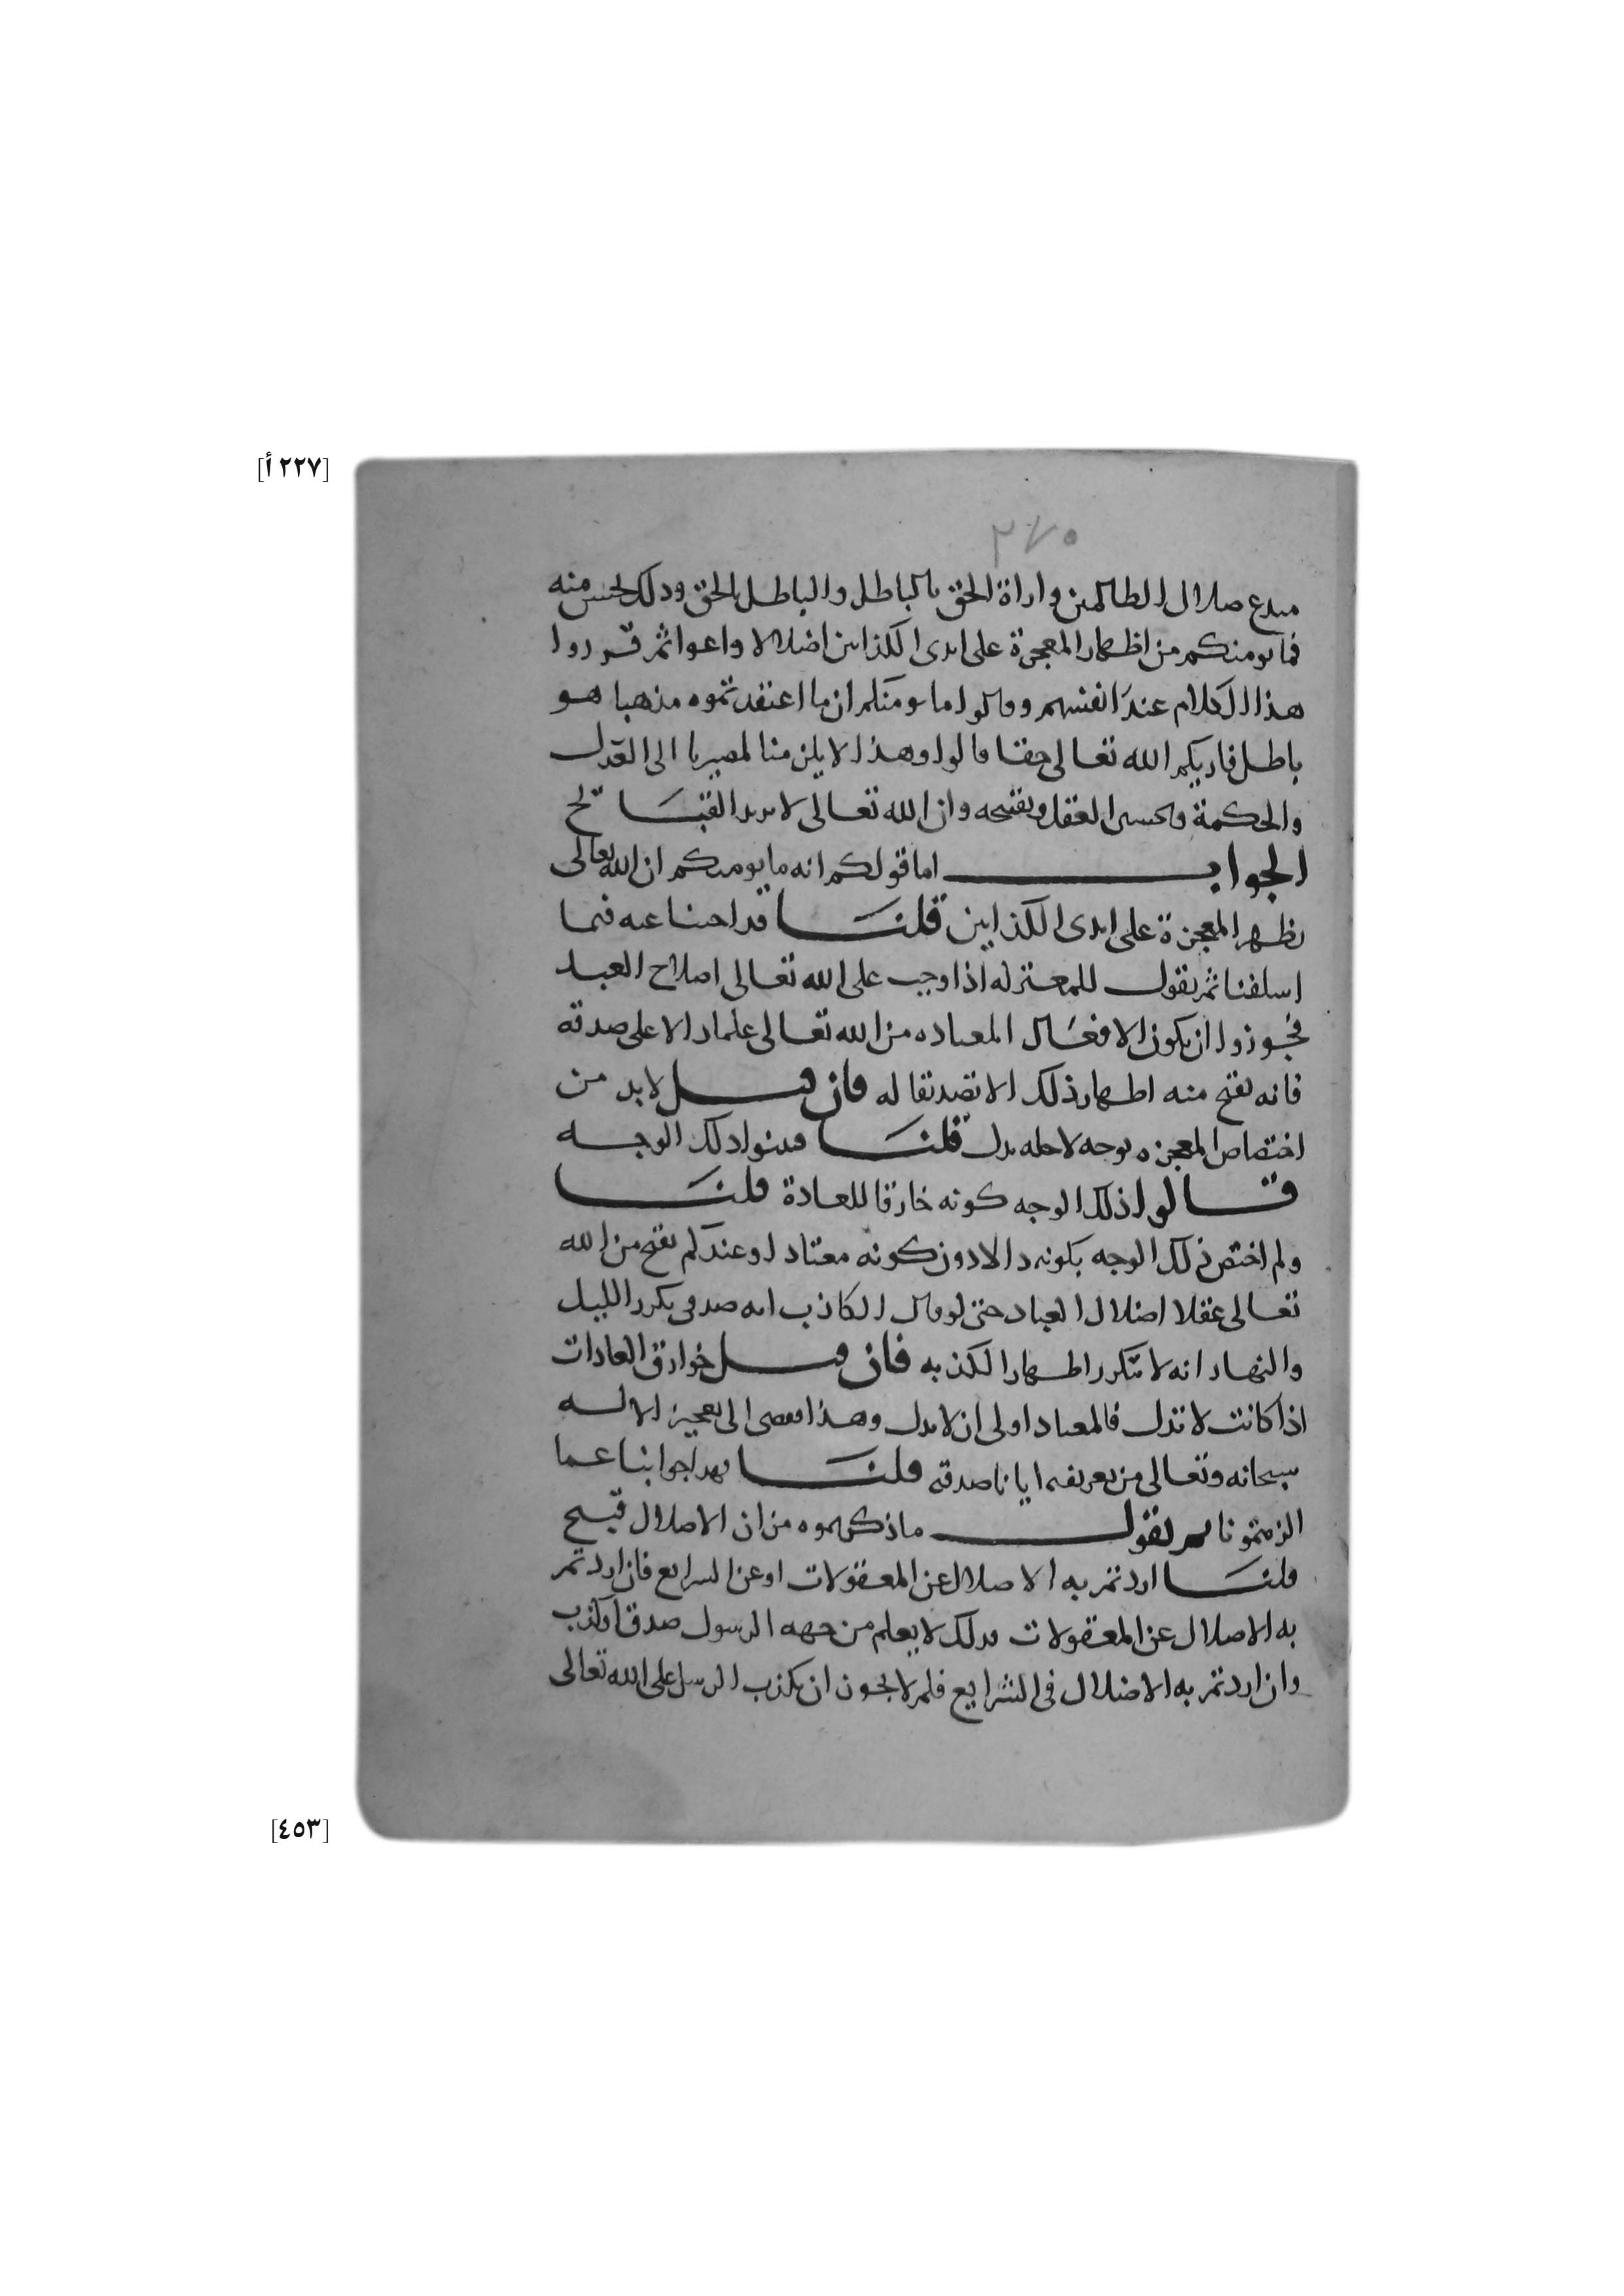 [٢٢٧ أ]
٢٧٥
مبدع ضلال الظالمين واراة الحق بالباطل والباطل بالحق وذلك يحسن منه
فما يومنكم من اظهار المعجزة على ايدى الكذابين اضلالا واغوا ثم قرروا
هذا الكلام عند انفسهم وقالوا ما يومنكم ان ما اعتقدتموه مذهبا هو
باطل فاريكم الله تعالى حقا قالوا وهذا لا يلزمنا لمصيرنا الى العدل
والحكمة وتحسين العقل وتقبيحه وان الله تعالى لا يريد القبائح
الجواب اما قولكم انه ما يومنكم ان الله تعالى
يظهر المعجزة على ايدى الكذابين قلنا قد اجبنا عنه فيما
اسلفنا ثم نقول للمعتزله اذا وجب على الله تعالى اصلاح العبد
فجوزوا ان يكون الافعال المعتاده من الله تعالى علما دالا على صدقه
فانه يقبح منه اظهار ذلك الا تصديقا له فان قيل لا بد من
اختصاص المعجزه بوجه لاجله يدل قلنا فبينوا ذلك الوجه
قالوا ذلك الوجه كونه خارقا للعادة قلنا
ولم اختص ذلك الوجه بكونه دالا دون كونه معتادا وعندكم يقبح من الله
تعالى عقلا اضلال العباد حتى لو قال الكاذب ايه صدقى تكرر الليل
والنهار انه لا يتكرر اظهارا لكذبه فان قيل خوارق العادات
اذا كانت لا تدل فالمعتاد اولى ان لا يدل وهذا يفضى الى تعجيز الاله
سبحانه وتعالى من تعريفه ايانا صدقه قلنا فهذا جوابنا عما
الزمتمونا ثم نقول ما ذكرتموه من ان الاضلال قبيح
قلنا اردتم به الاضلال عن المعقولات او عن الشرايع فان اردتم
به الاضلال عن المعقولات فذلك لا يعلم من جهه الرسول صدق او كذب
وان اردتم به الاضلال فى الشرايع فلم لا يجوز ان يكذب الرسل على الله تعالى
[٤٥٣]